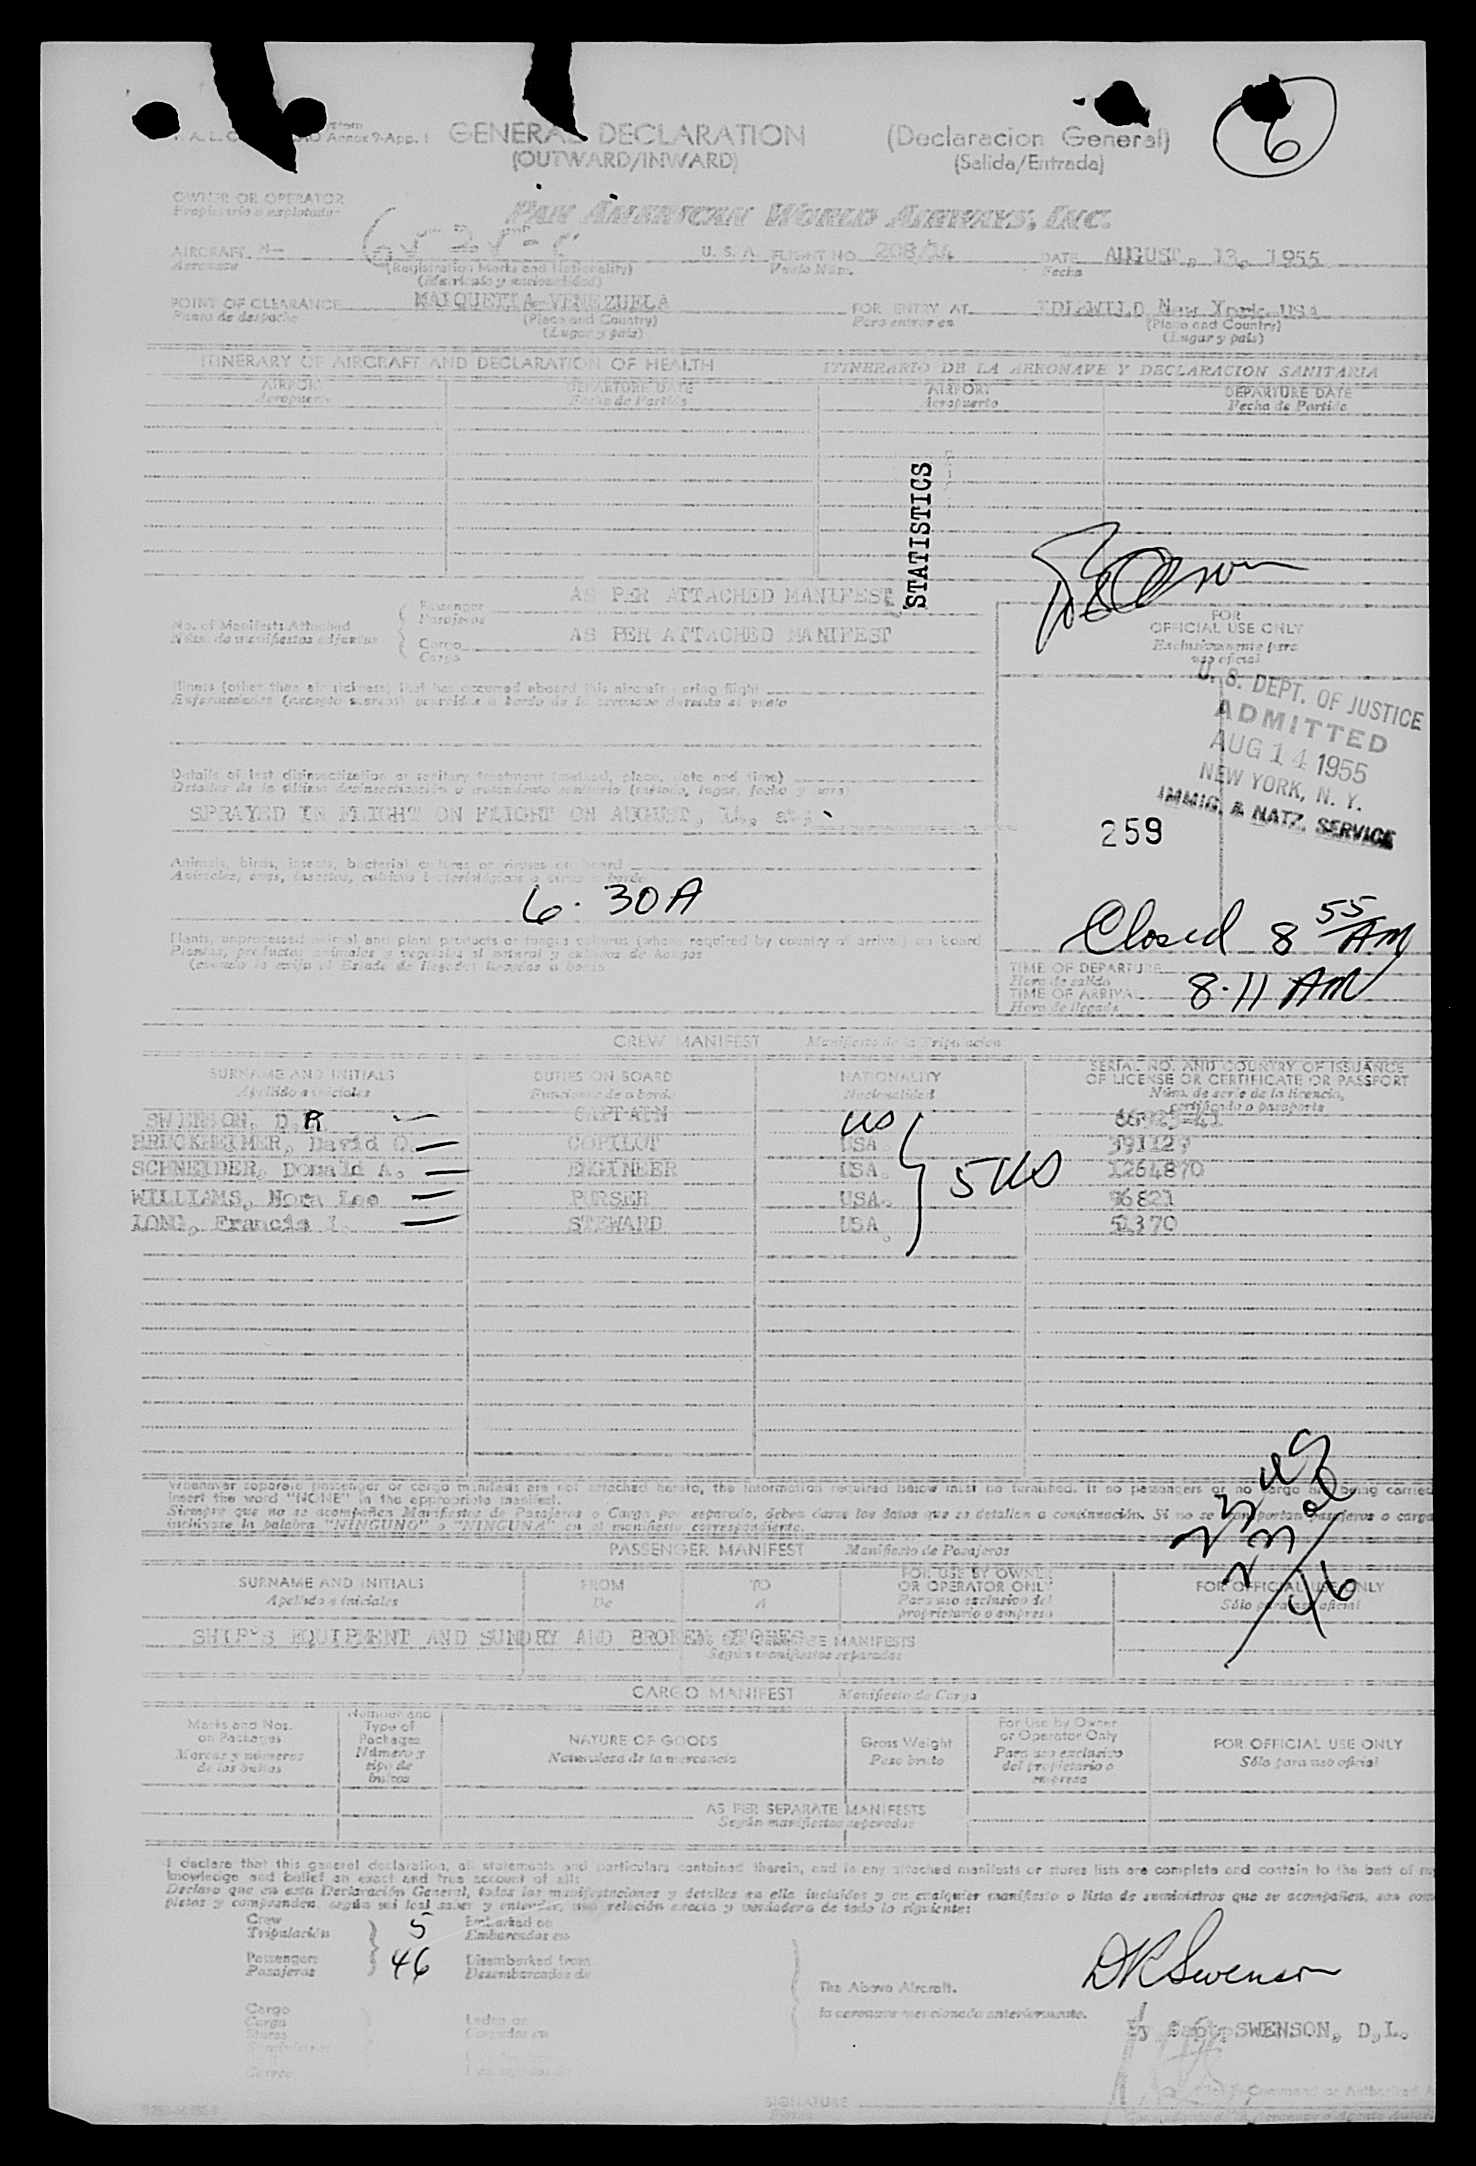 Annex 9-App. 1
GENERAL DECLARATION (Declaracion General)
(OUTWARD/INWARD) (Salida/Entrada)
6
OWNER OR OPERATOR
Propietario o explotador
PAN AMERICAN WORLD AIRWAYS, INC.
AIRCRAFT N- U. S. A. FLIGHT NO. DATE AUGUST, 13, 1955
Aeronave (Registration Marks and Nationality) Vuelo Núm. Fecha
(Matrícula y nacionalidad)
POINT OF CLEARANCE MAIQUETIA VENEZUELA FOR ENTRY AT IDLEWILD New York USA
Punto de despacho (Place and Country) Para entrar en (Place and Country)
(Lugar y país) (Lugar y país)
ITINERARY OF AIRCRAFT AND DECLARATION OF HEALTH ITINERARIO DE LA AERONAVE Y DECLARACION SANITARIA
AIRPORT DEPARTURE DATE AIRPORT DEPARTURE DATE
Aeropuerto Fecha de Partida Aeropuerto Fecha de Partida
STATISTICS
No. of Manifests Attached
Núm. de manifiestos adjuntos
Passenger AS PER ATTACHED MANIFEST
Pasajeros
Cargo AS PER ATTACHED MANIFEST
Carga
FOR
OFFICIAL USE ONLY
Exclusivamente para
uso oficial
U. S. DEPT. OF JUSTICE
ADMITTED
AUG 14 1955
NEW YORK, N. Y.
IMMIG. & NATZ. SERVICE
259
Illness (other than air sickness) that has occurred aboard this aircraft during flight
Enfermedades (excepto mareos) ocurridas a bordo de la aeronave durante el vuelo
Details of last disinsectization or sanitary treatment (method, place, date and time)
Detalles de la última desinsectización o tratamiento sanitario (método, lugar, fecha y hora)
SPRAYED IN FLIGHT ON FLIGHT ON AUGUST, 14, at
Animals, birds, insects, bacterial cultures or viruses on board
Animales, aves, insectos, cultivos bacteriológicos o virus a bordo
6.30A
Plants, unprocessed animal and plant products or fungus cultures (where required by country of arrival) on board
Closed 8 55 AM
TIME OF DEPARTURE
Hora de salida
TIME OF ARRIVAL 8.11 AM
Hora de llegada
CREW MANIFEST Manifiesto de la Tripulacion
SURNAME AND INITIALS DUTIES ON BOARD NATIONALITY SERIAL NO. AND COUNTRY OF ISSUANCE
OF LICENSE OR CERTIFICATE OR PASSPORT
Apellido e iniciales Funciones de a bordo Nacionalidad Núm. de serie de la licencia,
certificado o pasaporte
SWENSON, D. R CAPTAIN US
BRUCKHEIMER, David O. COPILOT USA
SCHNEIDER, Donald A. ENGINEER USA. 1264870
WILLIAMS, Nora Lee PURSER USA.
LONG, Francis STEWARD USA
5 US
Whenever separate passenger or cargo manifests are not attached hereto, the information required below must be furnished. If no passengers or no cargo are being carried
insert the word "NONE" in the appropriate manifest.
Siempre que no se acompañen Manifiestos de Pasajeros o Carga por separado, deben darse los datos que se detallan a continuación. Si no se transportan pasajeros o carga
inclúyase la palabra "NINGUNO" o "NINGUNA" en el manifiesto correspondiente.
23 US
23 al
46
PASSENGER MANIFEST Manifiesto de Pasajeros
SURNAME AND INITIALS FROM TO FOR USE BY OWNER
OR OPERATOR ONLY FOR OFFICIAL USE ONLY
Apellido e iniciales De A Para uso exclusivo del
propietario o empresa Sólo para uso oficial
SHIP'S EQUIPMENT AND SUNDRY AND BROKEN STORES MANIFESTS
Según manifiestos separados
CARGO MANIFEST Manifiesto de Carga
Marks and Nos.
on Packages
Marcas y números
de los bultos
Number and
Type of
Packages
Número y
tipo de
bultos
NATURE OF GOODS
Naturaleza de la mercancía
Gross Weight
Peso bruto
For Use by Owner
or Operator Only
Para uso exclusivo
del propietario o
empresa
FOR OFFICIAL USE ONLY
Sólo para uso oficial
AS PER SEPARATE MANIFESTS
Según manifiestos separados
I declare that this general declaration, all statements and particulars contained therein, and in any attached manifests or stores lists are complete and contain to the best of my
knowledge and belief an exact and true account of all:
Declaro que en esta Declaración General, todas las manifestaciones y detalles en ella incluidos y en cualquier manifiesto o lista de suministros que se acompañen, son com
pletos y comprenden, según mi leal saber y entender, una relación exacta y verdadera de todo lo siguiente:
Crew 5 Embarked on
Tripulación Embarcados en
Passengers 46 Disembarked from
Pasajeros Desembarcados de
Cargo
Carga
Stores
Laden on
Cargados en
The Above Aircraft.
la aeronave mencionada anteriormente.
DR Swenson
Capt. SWENSON, D.L.
SIGNATURE